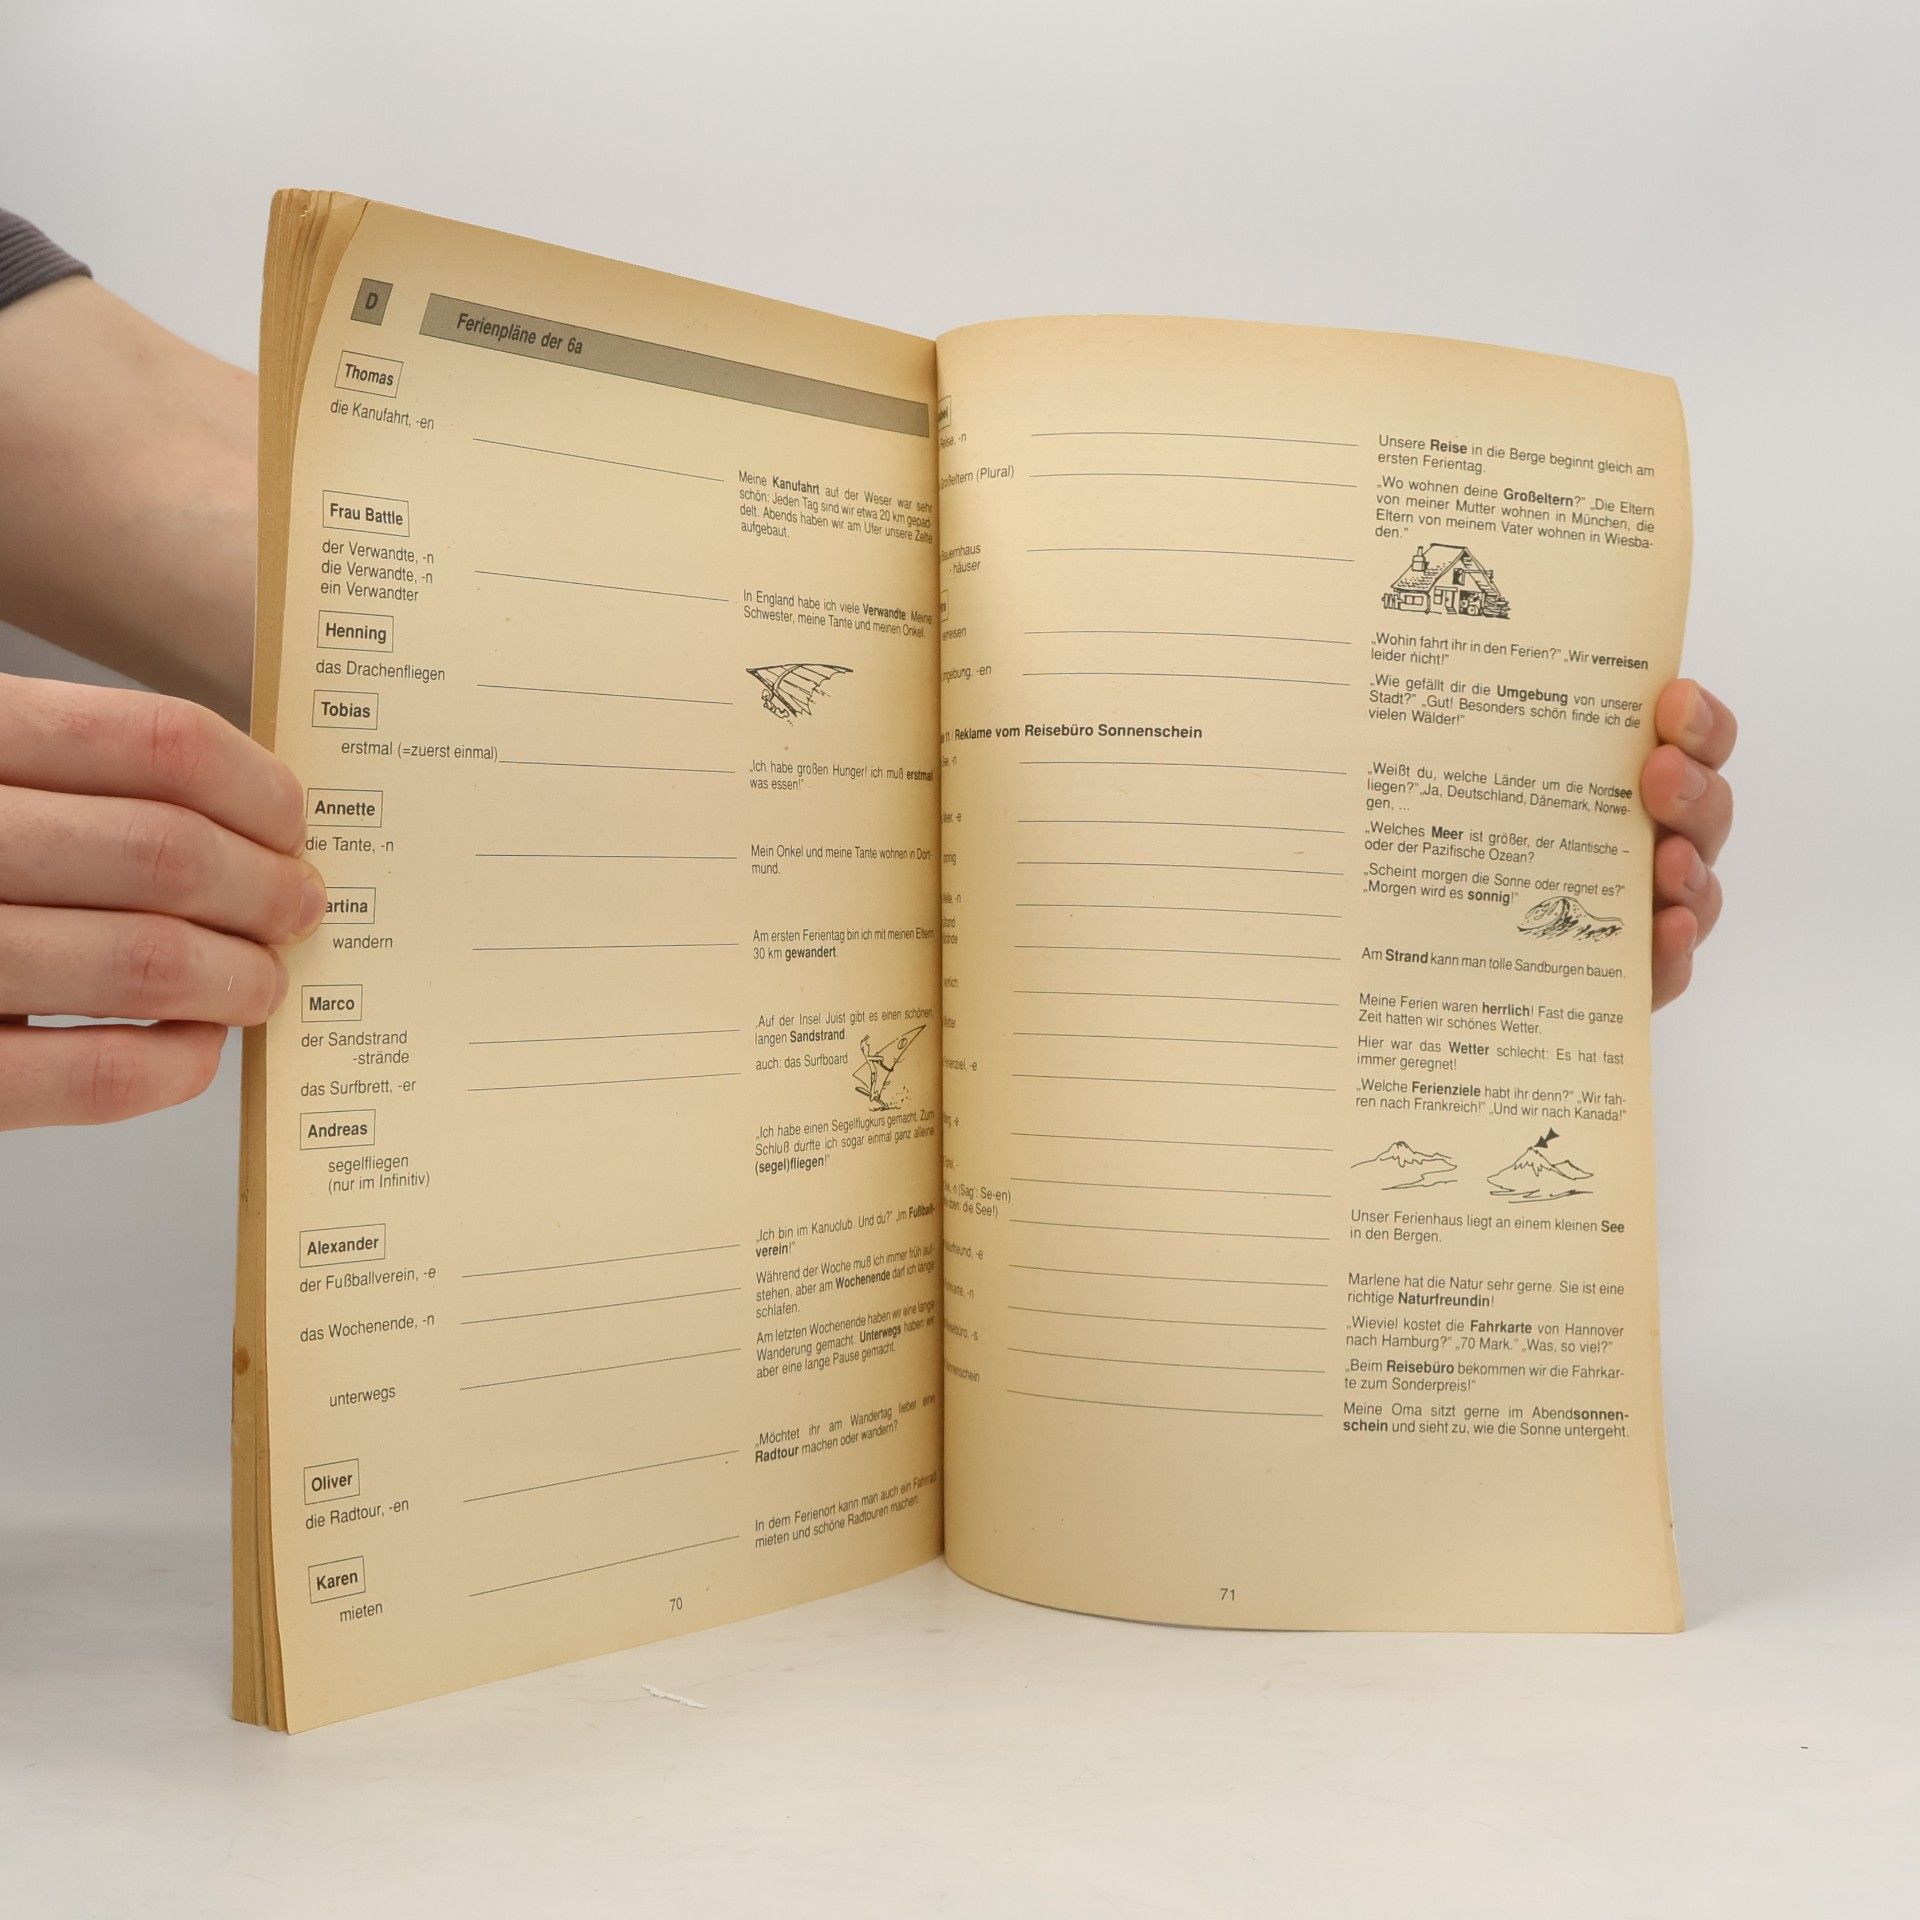 D
Ferienpläne der 6a
Thomas
die Kanufahrt, -en
Meine Kanufahrt auf der Weser war sehr
schön: Jeden Tag sind wir etwa 20 km gepad-
delt. Abends haben wir am Ufer unsere Zelte
aufgebaut.
Frau Battle
der Verwandte, -n
die Verwandte, -n
ein Verwandter
In England habe ich viele Verwandte: Meine
Schwester, meine Tante und meinen Onkel.
Henning
das Drachenfliegen
Tobias
erstmal (=zuerst einmal)
„Ich habe großen Hunger! ich muß erstmal
was essen!"
Annette
die Tante, -n
Mein Onkel und meine Tante wohnen in Dort-
mund.
artina
wandern
Am ersten Ferientag bin ich mit meinen Eltern
30 km gewandert.
Marco
der Sandstrand
-strände
„Auf der Insel Juist gibt es einen schönen,
langen Sandstrand.
das Surfbrett, -er
auch: das Surfboard
Andreas
segelfliegen
(nur im Infinitiv)
„Ich habe einen Segelflugkurs gemacht. Zum
Schluß durfte ich sogar einmal ganz alleine
(segel)fliegen!"
Alexander
der Fußballverein, -e
„Ich bin im Kanuclub. Und du?" „Im Fußball-
verein!"
das Wochenende, -n
Während der Woche muß ich immer früh auf-
stehen, aber am Wochenende darf ich lange
schlafen.
unterwegs
Am letzten Wochenende haben wir eine lange
Wanderung gemacht. Unterwegs haben wir
aber eine lange Pause gemacht.
Oliver
die Radtour, -en
„Möchtet ihr am Wandertag lieber eine
Radtour machen oder wandern?
Karen
mieten
In dem Ferienort kann man auch ein Fahrrad
mieten und schöne Radtouren machen.
70
Reise, -n
Unsere Reise in die Berge beginnt gleich am
ersten Ferientag.
Großeltern (Plural)
„Wo wohnen deine Großeltern?" „Die Eltern
von meiner Mutter wohnen in München, die
Eltern von meinem Vater wohnen in Wiesba-
den."
Bauernhaus
-häuser
reisen
„Wohin fahrt ihr in den Ferien?" „Wir verreisen
leider nicht!"
mgebung, -en
„Wie gefällt dir die Umgebung von unserer
Stadt?" „Gut! Besonders schön finde ich die
vielen Wälder!"
11 Reklame vom Reisebüro Sonnenschein
See, -n
„Weißt du, welche Länder um die Nordsee
liegen?" „Ja, Deutschland, Dänemark, Norwe-
gen, ...
Meer, -e
„Welches Meer ist größer, der Atlantische –
oder der Pazifische Ozean?
nnig
„Scheint morgen die Sonne oder regnet es?"
„Morgen wird es sonnig!"
elle, -n
Strand
trände
Am Strand kann man tolle Sandburgen bauen.
errlich
Meine Ferien waren herrlich! Fast die ganze
Zeit hatten wir schönes Wetter.
etter
Hier war das Wetter schlecht: Es hat fast
immer geregnet!
erienziel, -e
„Welche Ferienziele habt ihr denn?" „Wir fah-
ren nach Frankreich!" „Und wir nach Kanada!"
erg, -e
ipfel, -
ee, -n (Sag': Se-en)
oben: die See!)
Unser Ferienhaus liegt an einem kleinen See
in den Bergen.
aturfreund, -e
Marlene hat die Natur sehr gerne. Sie ist eine
richtige Naturfreundin!
ahrkarte, -n
„Wieviel kostet die Fahrkarte von Hannover
nach Hamburg?" „70 Mark." „Was, so viel?"
eisebüro, -s
„Beim Reisebüro bekommen wir die Fahrkar-
te zum Sonderpreis!"
nnenschein
Meine Oma sitzt gerne im Abendsonnen-
schein und sieht zu, wie die Sonne untergeht.
71